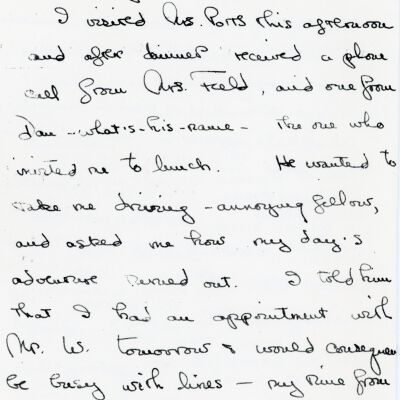 I visited Mrs. Potts this afternoon
and after dinner received a phone
call from Mrs. Field, and one from
Dan -what's-his-name- The one who
invited me to lunch. He wanted to
take me driving -annoying fellow,
and asked me how my day's
adventure turned out. I told him
that I had an appointment with
Mr. W. tomorrow & would consequen
be busy with lines - my time from